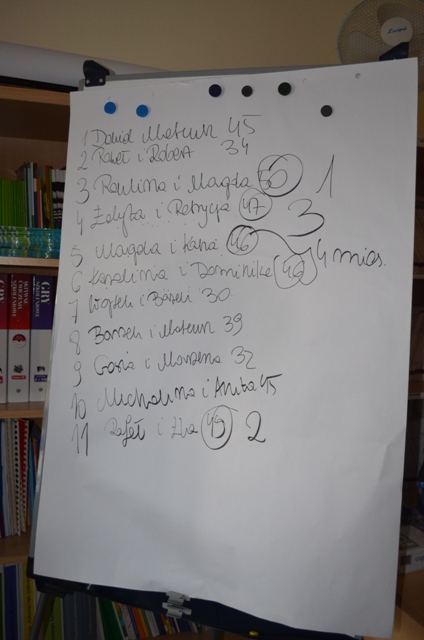 1 Dawid Mateusz 45
2 Paweł i Robert 34
3 Paulina i Magda 50 1
4 Edyta i Patrycja 47 3
5 Magda i Kasia 46
6 Karolina i Dominika 46 4 mias.
7 Wojtek i Bartek 30
8 Bartek i Mateusz 39
9 Gosia i Marzena 32
10 Michalina i Aniba 45
11 Rafał i Iza 49 2
GRY
GRY